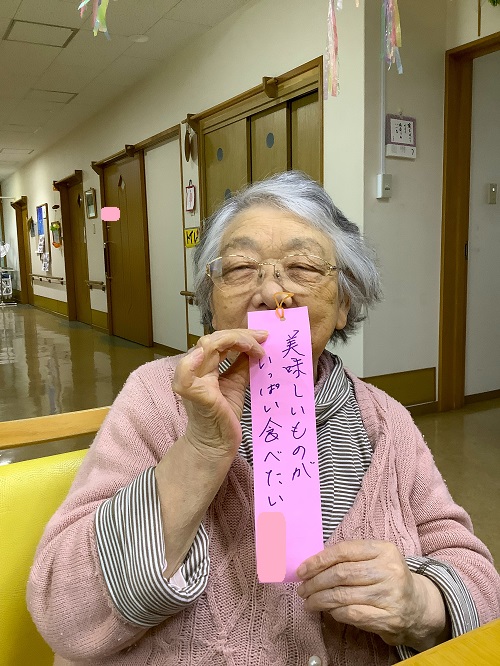 美味しいものが
いっぱい食べたい
トイレ
7